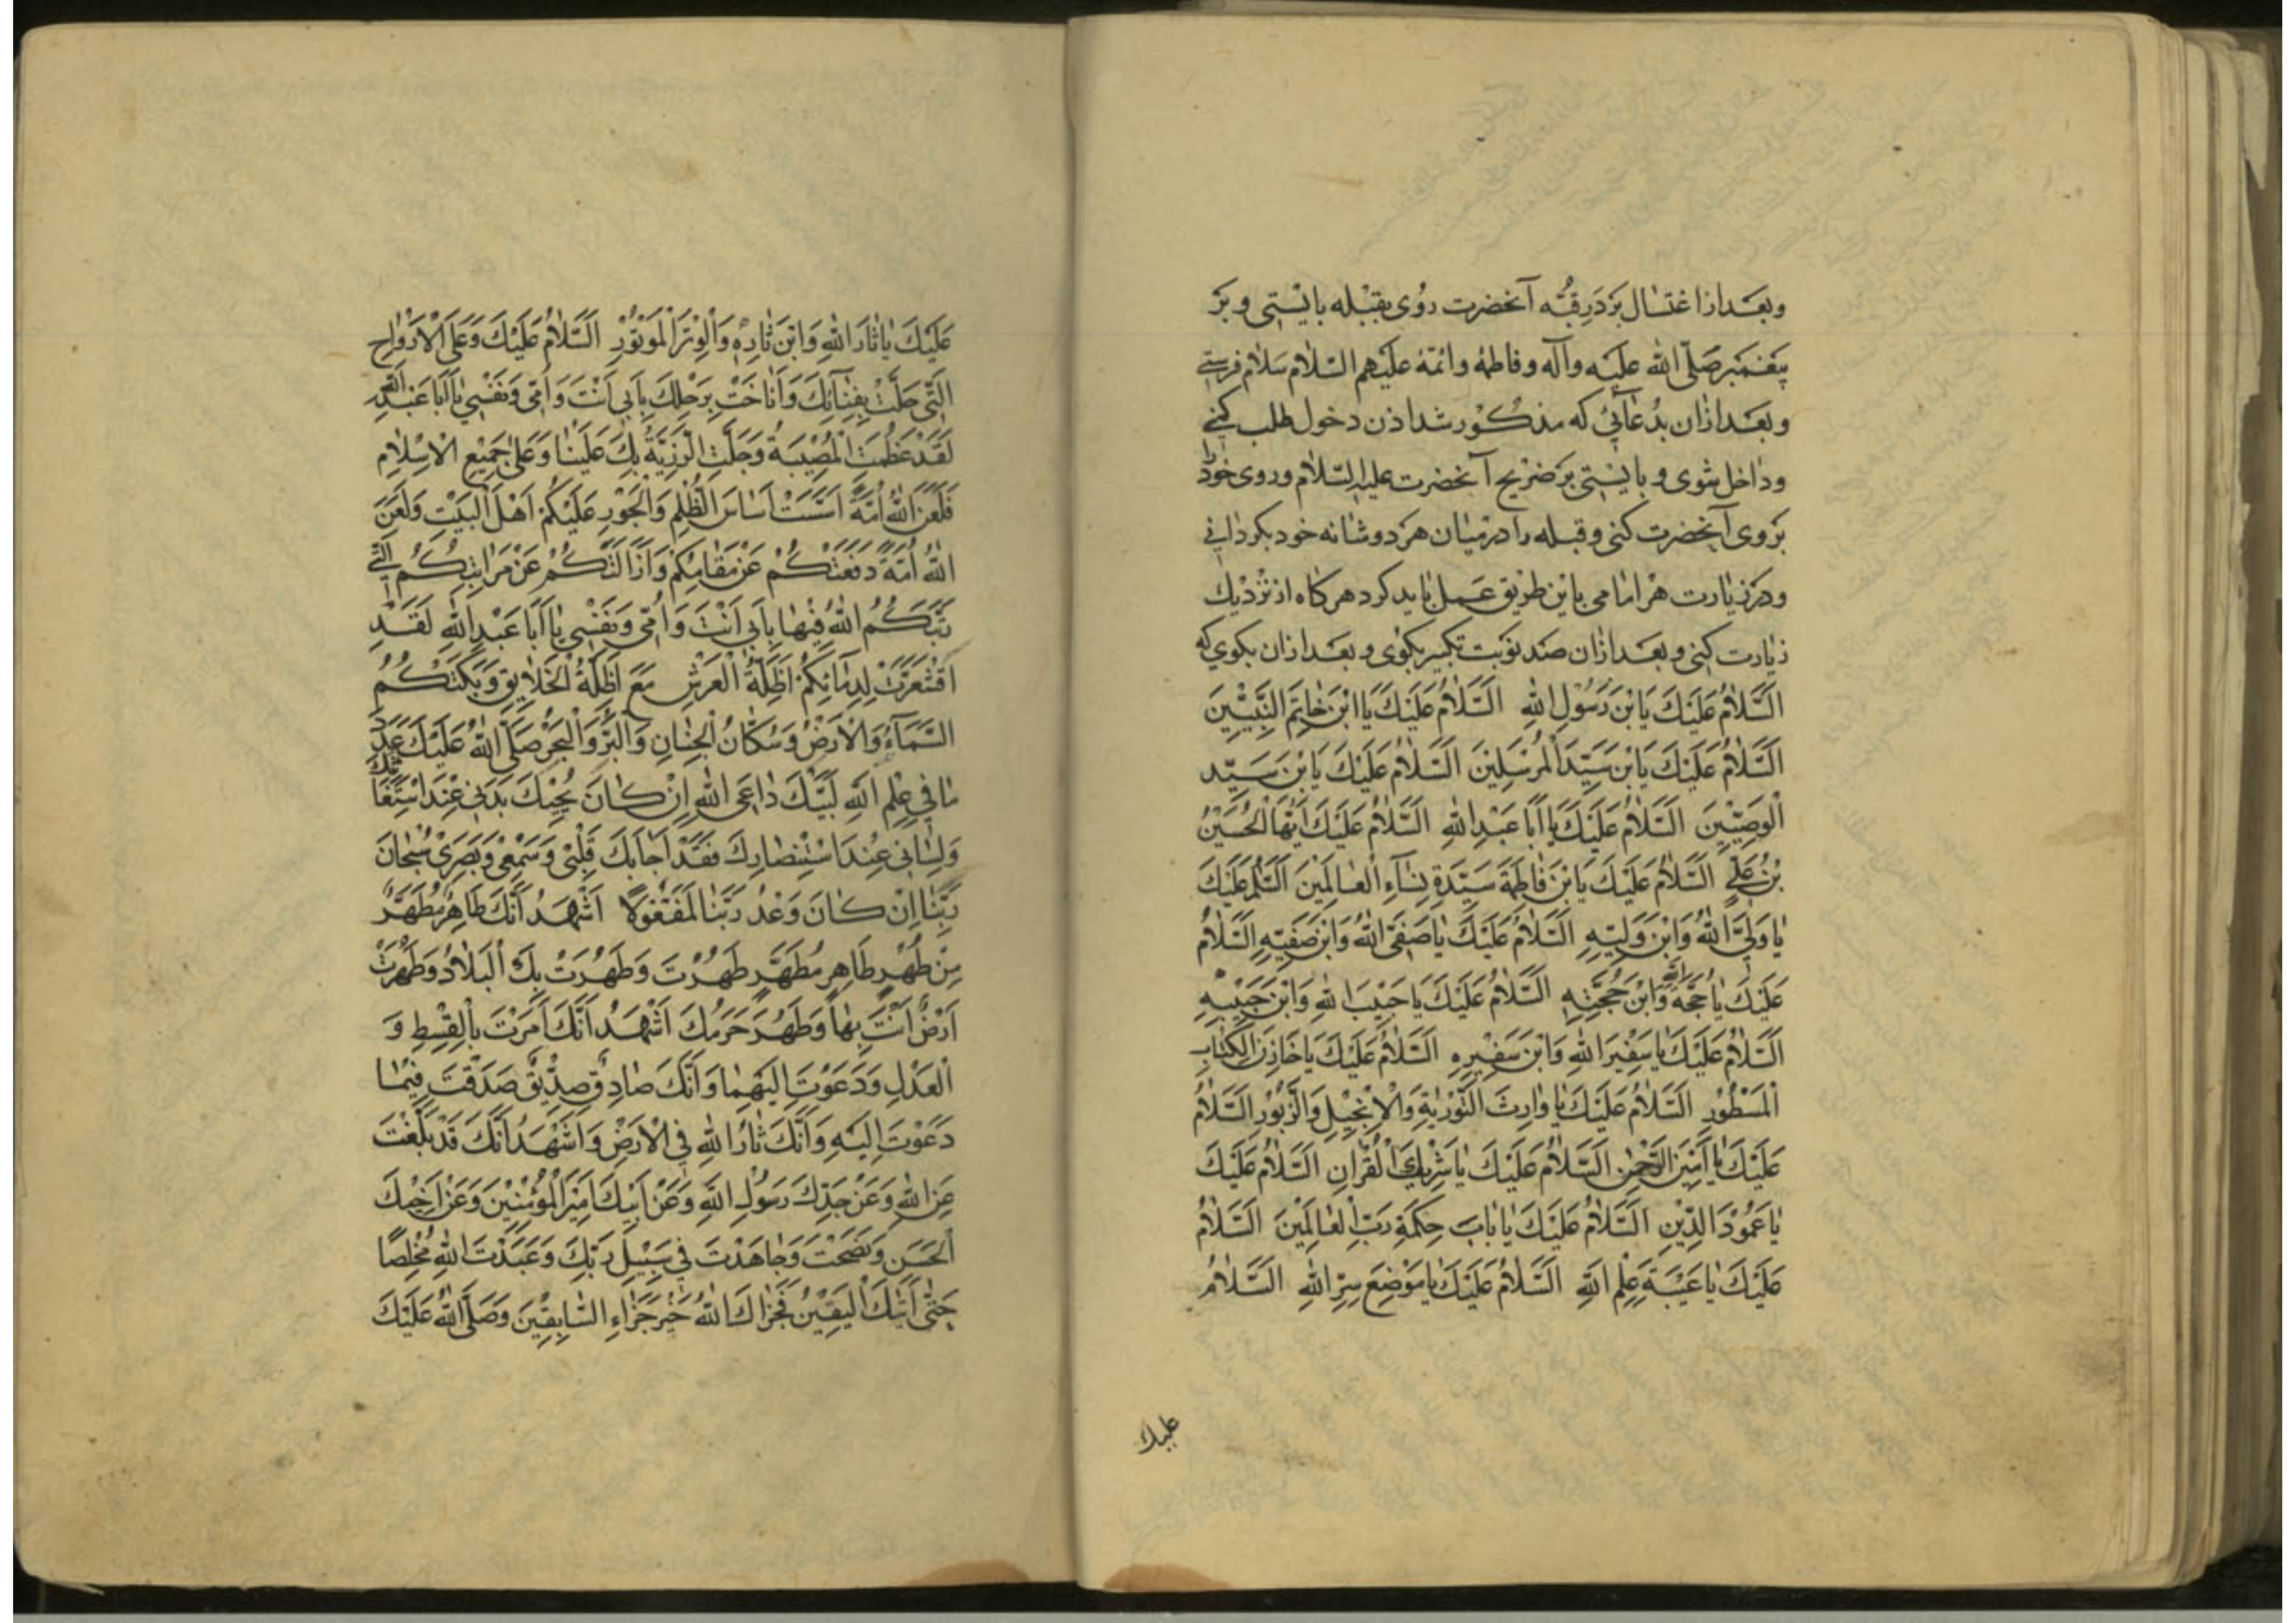 وبعد از اغتسال بر در قبّه آنحضرت روی بقبله بایستی و بر
پیغمبر صَلّی الله علیه وآله وفاطمه وائمّه علیهم السّلام سلام فرستی
وبعد ازان بدُعائی که مذکور شد اذن دخول طلب کنی
وداخل شوی و بایستی بر ضریح آنحضرت علیه السّلام وروی خود را
بروی آنحضرت کنی وقبله را در میان هر دو شانه خود بکردانی
ودر زیارت هر امامی باین طریق عمل باید کرد هرکاه از نزدیك
زیارت کنی و بعد ازان صد نوبت تکبیر بکوی و بعد ازان بکوی که
اَلسَّلامُ عَلَيْكَ يَابْنَ رَسُولِ اللهِ اَلسَّلامُ عَلَيْكَ يَا ابْنَ خَاتِمَ النَّبِيّينَ
اَلسَّلامُ عَلَيْكَ يَابْنَ سَيِّدَ الْمُرْسَلِينَ اَلسَّلامُ عَلَيْكَ يَابْنَ سَيِّدِ
الْوَصِيّينَ اَلسَّلامُ عَلَيْكَ يَا اَبَا عَبْدِ اللهِ اَلسَّلامُ عَلَيْكَ اَيُّهَا الْحُسَيْنُ
بْنُ عَلِيٍّ اَلسَّلامُ عَلَيْكَ يَابْنَ فَاطِمَةَ سَيِّدَةِ نِسَآءِ الْعَالَمِينَ اَلسَّلامُ عَلَيْكَ
يَا وَلِيَّ اللهِ وَابْنَ وَلِيِّهِ اَلسَّلامُ عَلَيْكَ يَا صَفِيَّ اللهِ وَابْنَ صَفِيِّهِ اَلسَّلامُ
عَلَيْكَ يَا حُجَّةَ اللهِ وَابْنَ حُجَّتِهِ اَلسَّلامُ عَلَيْكَ يَا حَبِيبَ اللهِ وَابْنَ حَبِيبِهِ
اَلسَّلامُ عَلَيْكَ يَا سَفِيرَ اللهِ وَابْنَ سَفِيرِهِ اَلسَّلامُ عَلَيْكَ يَا خَازِنَ الْكِتَابِ
الْمَسْطُورِ اَلسَّلامُ عَلَيْكَ يَا وَارِثَ التَّوْرٰيةِ وَالْاِنْجِيلِ وَالزَّبُورِ اَلسَّلامُ
عَلَيْكَ يَا اَمِينَ الرَّحْمٰنِ اَلسَّلامُ عَلَيْكَ يَا شَرِيكَ الْقُرْاٰنِ اَلسَّلامُ عَلَيْكَ
يَا عَمُودَ الدِّينِ اَلسَّلامُ عَلَيْكَ يَا بَابَ حِكْمَةِ رَبِّ الْعَالَمِينَ اَلسَّلامُ
عَلَيْكَ يَا عَيْبَةَ عِلْمِ اللهِ اَلسَّلامُ عَلَيْكَ يَا مَوْضِعَ سِرِّ اللهِ اَلسَّلامُ
علیك
عَلَيْكَ يَا ثَارَ اللهِ وَابْنَ ثَارِهِ وَالْوِتْرَ الْمَوْتُورَ اَلسَّلامُ عَلَيْكَ وَعَلَى الْاَرْوَاحِ
الَّتِي حَلَّتْ بِفِنَآئِكَ وَاَنَاخَتْ بِرَحْلِكَ بِاَبِي اَنْتَ وَاُمِّي وَنَفْسِي يَا اَبَا عَبْدِ اللهِ
لَقَدْ عَظُمَتِ الْمُصِيبَةُ وَجَلَّتِ الرَّزِيَّةُ بِكَ عَلَيْنَا وَعَلَى جَمِيعِ الْاِسْلَامِ
فَلَعَنَ اللهُ اُمَّةً اَسَّسَتْ اَسَاسَ الظُّلْمِ وَالْجَوْرِ عَلَيْكُمْ اَهْلَ الْبَيْتِ وَلَعَنَ
اللهُ اُمَّةً دَفَعَتْكُمْ عَنْ مَقَامِكُمْ وَاَزَالَتْكُمْ عَنْ مَرَاتِبِكُمُ الَّتِي
رَتَّبَكُمُ اللهُ فِيهَا بِاَبِي اَنْتَ وَاُمِّي وَنَفْسِي يَا اَبَا عَبْدِ اللهِ لَقَدِ
اقْشَعَرَّتْ لِدِمَآئِكُمْ اَظِلَّةُ الْعَرْشِ مَعَ اَظِلَّةِ الْخَلَايِقِ وَبَكَتْكُمُ
السَّمَآءُ وَالْاَرْضُ وَسُكَّانُ الْجِنَانِ وَالْبَرِّ وَالْبَحْرِ صَلَّى اللهُ عَلَيْكَ عَدَدَ
مَا فِي عِلْمِ اللهِ لَبَّيْكَ دَاعِيَ اللهِ اِنْ كَانَ لَمْ يُجِبْكَ بَدَنِي عِنْدَ اسْتِغَاثَتِكَ
وَلِسَانِي عِنْدَ اسْتِنْصَارِكَ فَقَدْ اَجَابَكَ قَلْبِي وَسَمْعِي وَبَصَرِي سُبْحَانَ
رَبِّنَا اِنْ كَانَ وَعْدُ رَبِّنَا لَمَفْعُولًا اَشْهَدُ اَنَّكَ طَاهِرٌ مُطَهَّرٌ
مِنْ طُهْرٍ طَاهِرٍ مُطَهَّرٍ طَهُرْتَ وَطَهُرَتْ بِكَ الْبِلَادُ وَطَهُرَتْ
اَرْضٌ اَنْتَ بِهَا وَطَهُرَ حَرَمُكَ اَشْهَدُ اَنَّكَ اَمَرْتَ بِالْقِسْطِ وَ
الْعَدْلِ وَدَعَوْتَ اِلَيْهِمَا وَاَنَّكَ صَادِقٌ صِدِّيقٌ صَدَقْتَ فِيمَا
دَعَوْتَ اِلَيْهِ وَاَنَّكَ ثَارُ اللهِ فِي الْاَرْضِ وَاَشْهَدُ اَنَّكَ قَدْ بَلَّغْتَ
عَنِ اللهِ وَعَنْ جَدِّكَ رَسُولِ اللهِ وَعَنْ اَبِيكَ اَمِيرِ الْمُؤْمِنِينَ وَعَنْ اَخِيكَ
الْحَسَنِ وَنَصَحْتَ وَجَاهَدْتَ فِي سَبِيلِ رَبِّكَ وَعَبَدْتَ اللهَ مُخْلِصًا
حَتّٰى اَتٰيكَ الْيَقِينُ فَجَزَاكَ اللهُ خَيْرَ جَزَاءِ السَّابِقِينَ وَصَلَّى اللهُ عَلَيْكَ